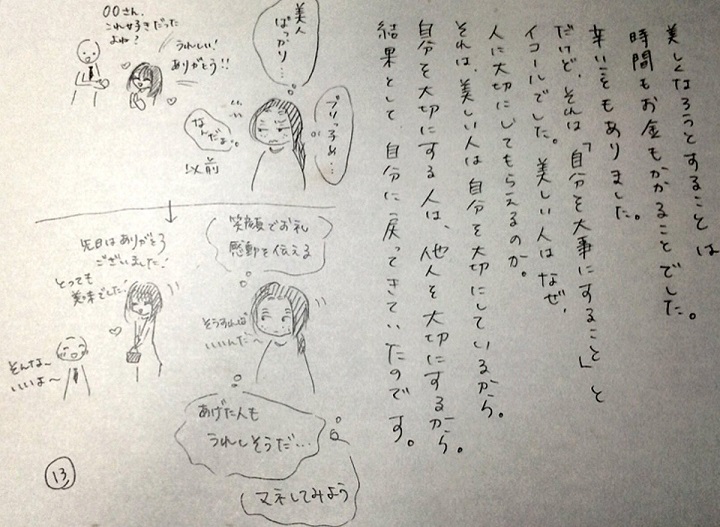 美しくなろうとすることは
時間もお金もかかることでした。
辛いこともありました。
だけど、それは「自分を大事にすること」と
イコールでした。美しい人はなぜ、
人に大切にしてもらえるのか。
それは、美しい人は自分を大切にしているから。
自分を大切にする人は、他人を大切にするから。
結果として 自分に戻ってきていたのです。
〇〇さん、
これ好きだった
よね?
うれしい!
ありがとう!!
美人
ばっかり…
ブリっ子め…
なんだよ。
以前
先日はありがとう
ございました!
とっても
美味でした!
そんな、
いいよ〜
笑顔でお礼
感動を伝える
そうすれば
いいんだ〜
あげた人も
うれしそうだ…
マネしてみよう
13